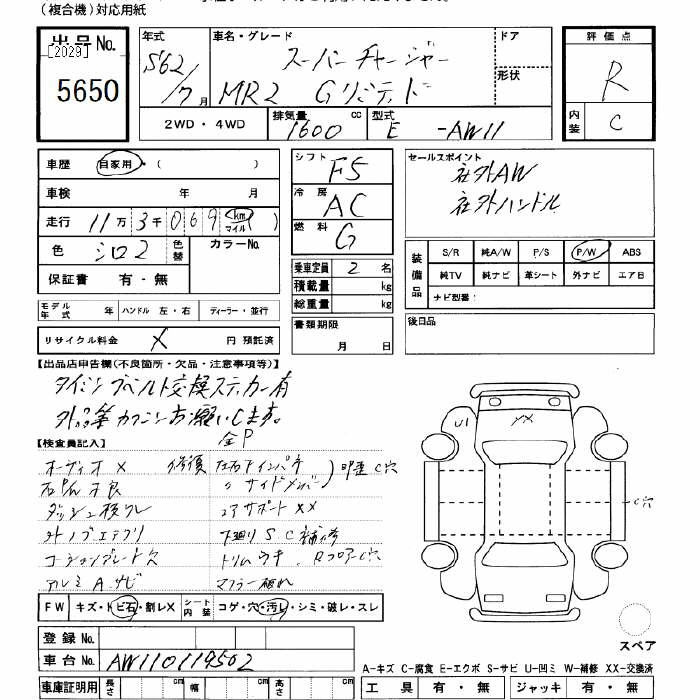 (複合機)対応用紙
出品No.
[2029]
5650
年式
S62/7月
車名・グレード
スーパーチャージャー
MR2 Gリミテッド
ドア
形状
評価点
R
内装
C
2WD・4WD
排気量
1600 cc
型式
E -AW11
車歴 自家用・( )
車検 年 月
走行 11万3千069 (km マイル)
色 シロ2 色替 カラーNo.
保証書 有・無
シフト F5
冷房 AC
燃料 G
乗車定員 2 名
積載量 kg
総重量 kg
セールスポイント
社外AW
社外ハンドル
装備品
S/R 純A/W P/S P/W ABS
純TV 純ナビ 革シート 外ナビ エアB
ナビ型番:
モデル年式 年 ハンドル 左・右 ディーラー・並行
リサイクル料金 X 円 預託済
書類期限 月 日
後日品
【出品店申告欄(不良箇所・欠品・注意事項等)】
タイミングベルト交換ステッカー有
外品等カクニンお願いします。
【検査員記入】
全P
オーディオ X 修復 左右Fインパネ
〃 サイドメンバー
C穴
コアサポートXX
下廻りSC補修
外ノブエアプリ
コーションプレート欠 トリムウキ、ロッカーC穴
アルミ Aサビ マフラー破れ
U1
XX
C穴
FW キズ・トビ石・割レX シート内装 コゲ・穴・汚レ・シミ・破レ・スレ
登録No.
車台No. AW110119502
車庫証明用 長さ cm 幅 cm 高さ cm
スペア
A-キズ C-腐食 E-エクボ S-サビ U-凹ミ W-補修 XX-交換済
工具 有・無 ジャッキ 有・無